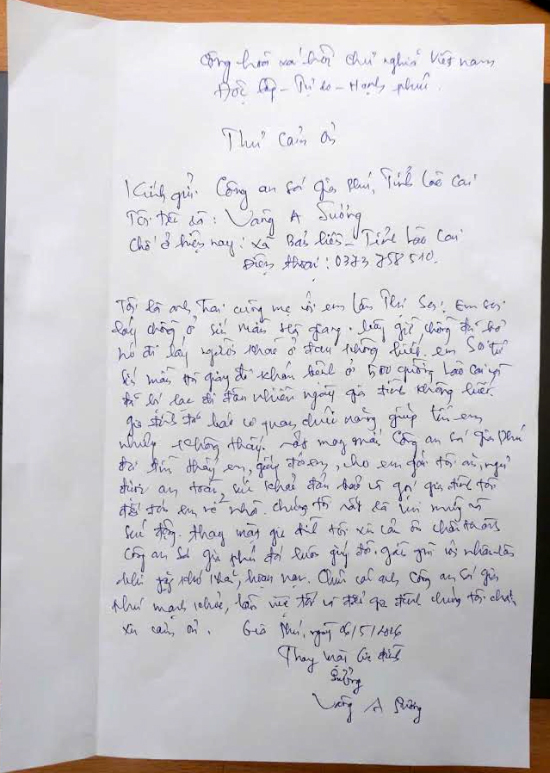 Cộng hoà xã hội chủ nghĩa Việt nam
Độc lập - Tự do - Hạnh phúc
Thư cảm ơn
Kính gửi: Công an xã Gia Phú, Tỉnh Lào Cai
Tôi tên là: Vàng A Sưởng
Chỗ ở hiện nay: xã Bản liền - Tỉnh Lào Cai
Điện thoại: 0373 258 510.
Tôi là anh trai cùng mẹ với em
lấy chồng ở Hà giang. bây giờ chồng đã bỏ
đi lấy người khác ở đâu không biết. em
khám bệnh ở 500 giường Lào Cai
bị lạc đã nhiên ngày gia đình không biết.
gia đình đã báo cơ quan chức năng giúp tìm em
nhưng không thấy. rất may mắn Công an xã Gia Phú
đã tìm thấy em, giúp đỡ em, cho em
được an toàn, sức khoẻ đảm bảo và gọi gia đình tôi
đón em về nhà. chúng tôi rất là vui mừng và
xúc động. thay mặt gia đình tôi xin cảm ơn chân thành
Công an xã gia phú đã luôn giúp đỡ, gần gũi với nhân dân
khi gặp khó khăn, hoạn nạn. Chúc các anh công an xã gia
phú mạnh khoẻ, làm việc tốt gia đình chúng tôi chân
xin cảm ơn. Gia Phú, ngày 06/5/2026
Thay mặt Gia đình
Sưởng
Vàng A Sưởng